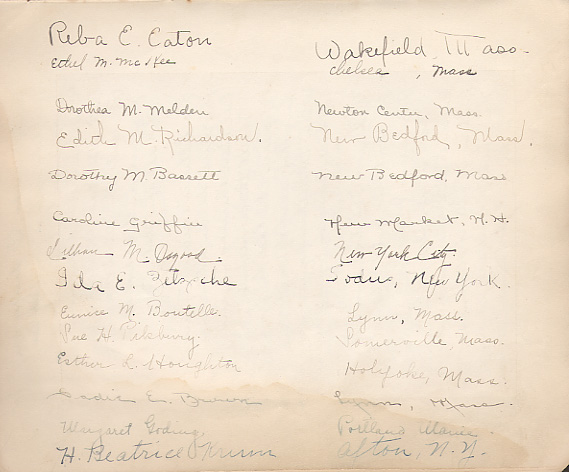 Reba E. Eaton Wakefield, Mass.
Ethel M. McKee Chelsea, Mass
Dorothea M. Melden Newton Center, Mass.
Edith M. Richardson. New Bedford, Mass.
Dorothy M. Bassett New Bedford, Mass
Caroline Griffin New Market, N.H.
Lillian M. Osgood. New York City.
Ida E. Sodus, New York.
Eunice M. Boutelle. Lynn, Mass.
Sue H. Pilsbury. Somerville, Mass.
Esther R. Houghton Holyoke, Mass.
Sadie E. Brown Lynn, Mass.
Margaret Goding. Portland Maine.
H. Beatrice Krum Afton, N.Y.